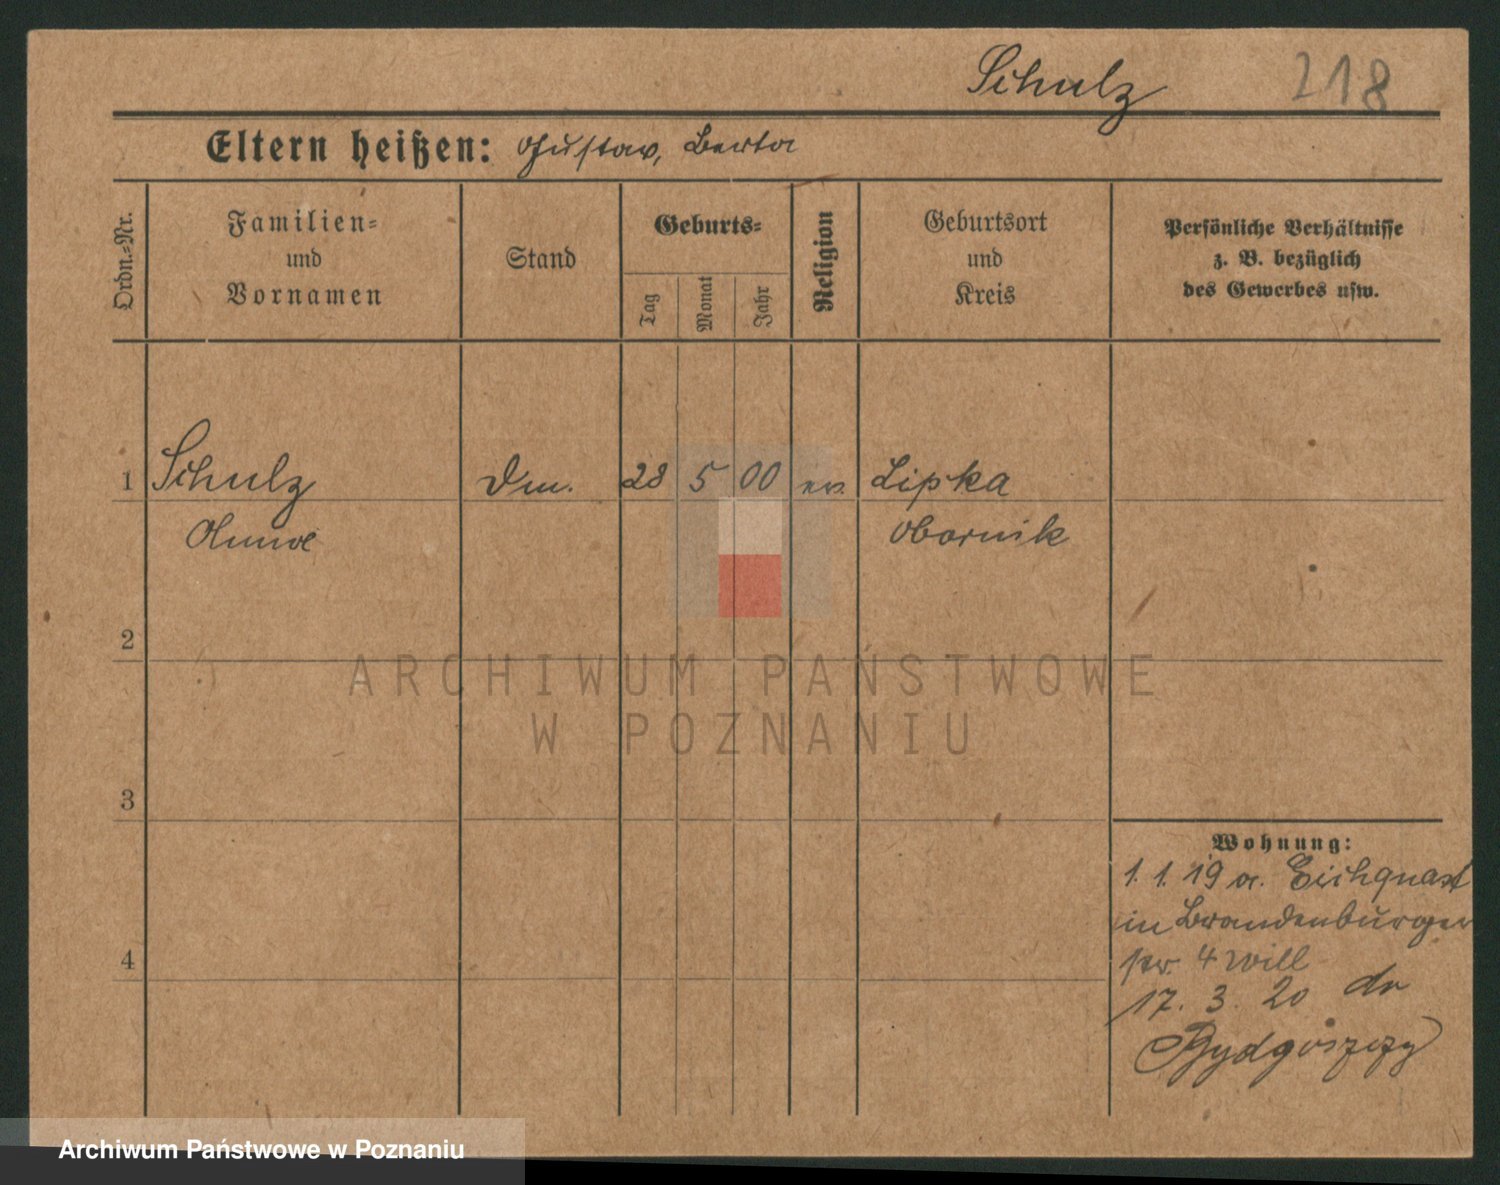 Schulz 218
Eltern heißen: Gustav, Berta
Ordn.=Nr.
Familien=
und
Vornamen
Stand
Geburts=
Tag
Monat
Jahr
Religion
Geburtsort
und
Kreis
Persönliche Verhältnisse
z. B. bezüglich
des Gewerbes usw.
1 Schulz Dm. 28 5 00 ev. Lipka
Obornik
2
ARCHIWUM PAŃSTWOWE
W POZNANIU
3
Wohnung:
1. 1. 19 a. Eichquast
in Brandenburger
str. 4 Will
4
17. 3. 20 do
Bydgoszczy
Archiwum Państwowe w Poznaniu